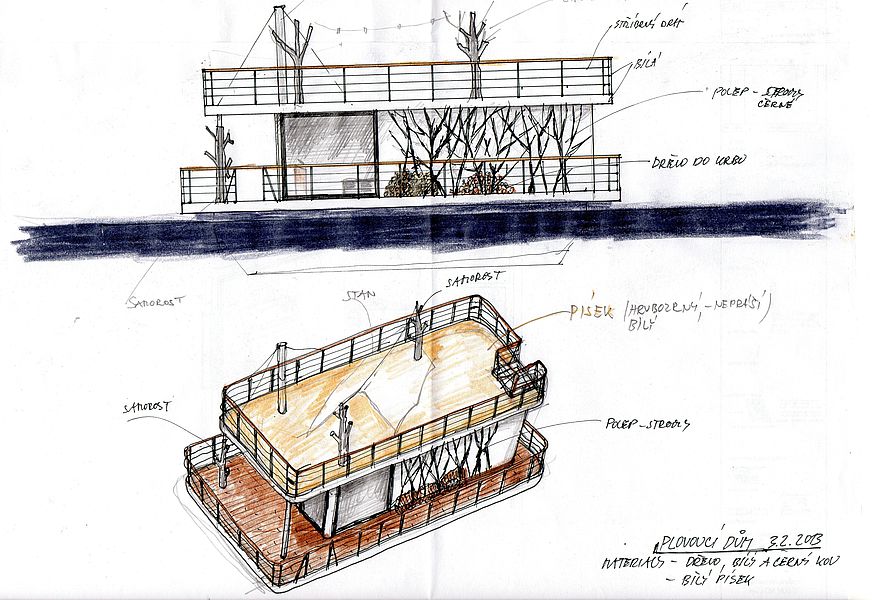 STŘÍBRNÝ DRÁT
BÍLÁ
POLEP - STROMY
ČERNÉ
DŘEVO DO KRBU
SAMOROST
STAN
SAMOROST
PÍSEK (HRUBOZRNÝ, - NEPRÁŠÍ)
BÍLÝ
SAMOROST
POLEP - STROMY
PLOVOUCÍ DŮM 3.2.2013
MATERIALY - DŘEVO, BÍLÝ A ČERNÝ KOV
- BÍLÝ PÍSEK